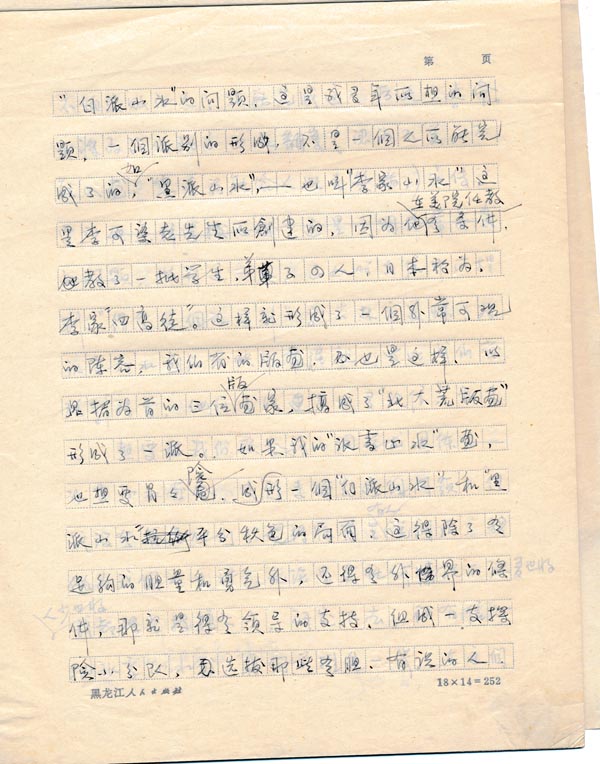 第 页
“白派山水”的问题，这是我多年所想的问
题，一個派别的形成，不是一個人所能完
成了的，如“黑派山水”——也叫“李家山水”这
是李可染老先生所創建的，因为他在美院任教有条件，
他教了一批学生，单了的人，日本称为，
李家“四高徒”。这样就形成了一個非常可观
的阵容，我们省的版画，不也是这样，以
晁楣为首的三位版画家，搞成了“北大荒版画”
形成了一派。如果我的“冰雪山水”画，
也想要冒险，成形一個“白派山水”和“黑
派山水”平分秋色的局面，这得除了有
足夠的胆量和勇气外，还得有外界的條
件，那就是得有领导的支持，组成一支探
险小分队，选拔那些有胆、有识的人
黑龙江人民出版社
18×14=252